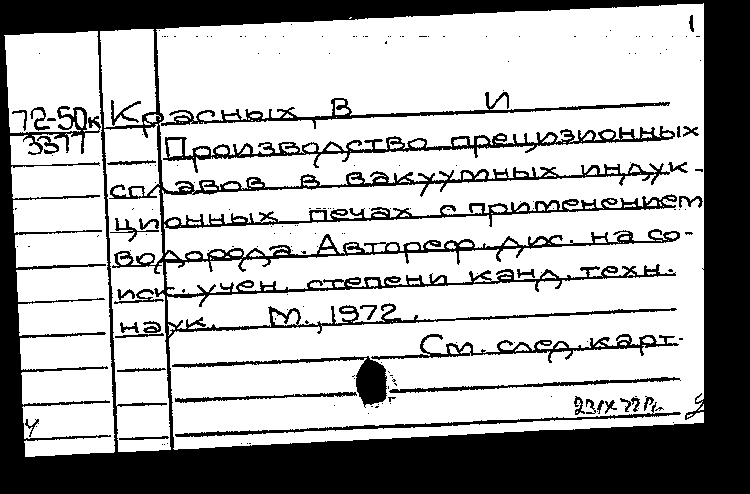 1
72-50к Красных, В И
3377 Производство прецизионных
сплавов в вакуумных индук-
ционных печах с применением
водорода. Автореф. дис. на со-
иск. учен. степени канд. техн.
наук. М., 1972.
См. след. карт.